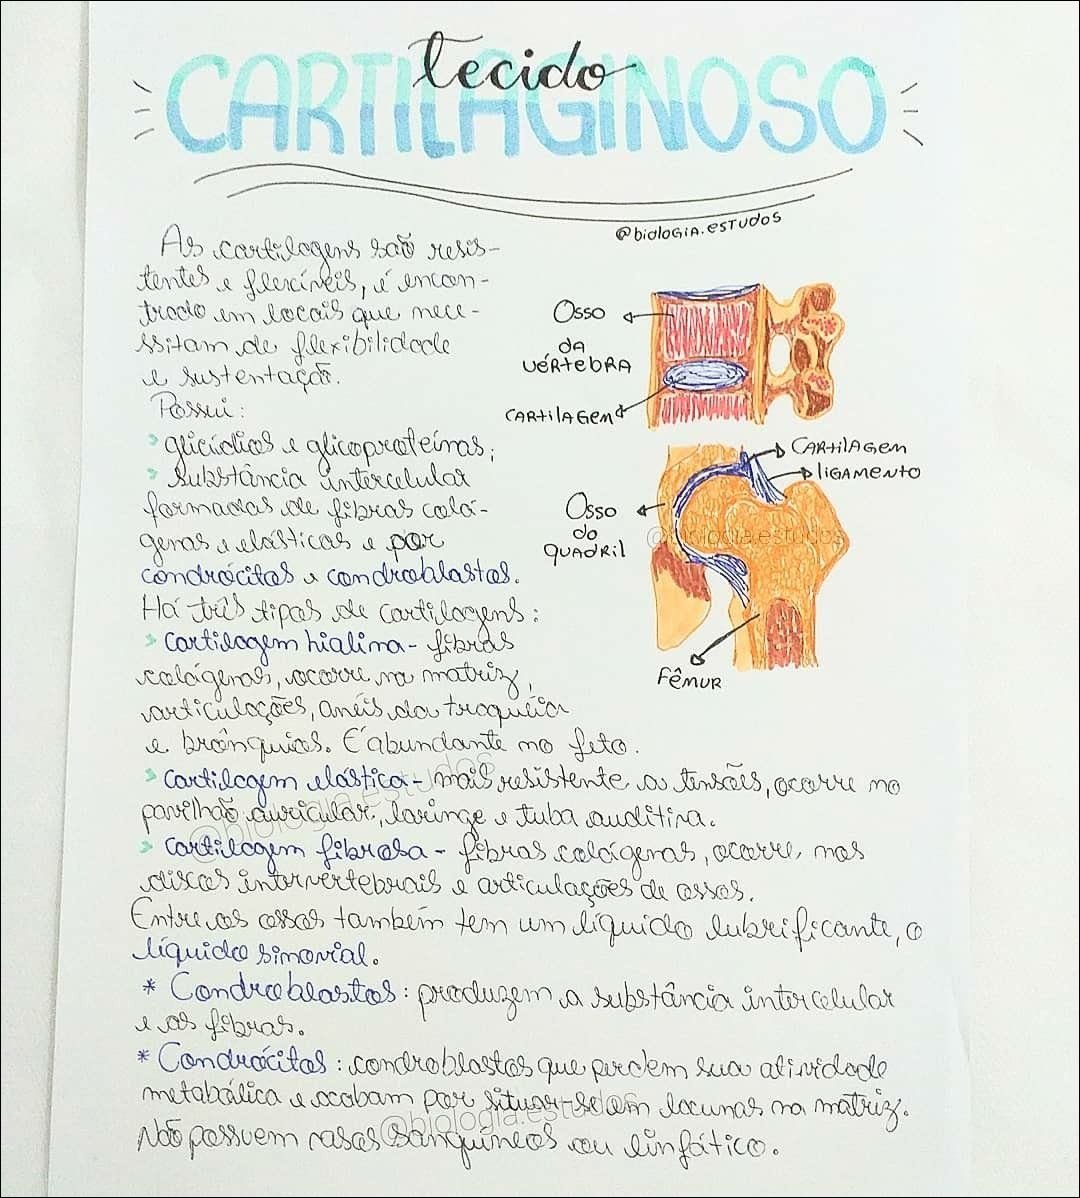 tecido
CARTILAGINOSO
@biologia.estudos
As cartilagens são resis-
tentes e flexíveis, é encon-
trado em locais que nece-
ssitam de flexibilidade
e sustentação.
Possui:
> glicídios e glicoproteínas;
> substância intercelular
formadas de fibras colá-
genas e elásticas e por
condrócitos e condroblastos.
Há três tipos de cartilagens:
> cartilagem hialina - fibras
colágenas, ocorre na matriz,
articulações, anéis da traquéia
e brônquios. É abundante no feto.
> cartilagem elástica - mais resistente a tensões, ocorre no
pavilhão auricular, laringe e tuba auditiva.
> cartilagem fibrosa - fibras colágenas, ocorre, nos
discos intervertebrais e articulações de ossos.
Entre os ossos também tem um líquido lubrificante, o
líquido sinovial.
* Condroblastos: produzem a substância intercelular
e as fibras.
* Condrócitos: condroblastos que perdem sua atividade
metabólica e acabam por situar-se em lacunas na matriz.
Não possuem vasos sanguíneos ou linfático.
Osso
da
vértebra
cartilagem
Cartilagem
ligamento
Osso
do
quadril
Fêmur
@biologia.estudos
@biologia.estudos
@biologia.estudos